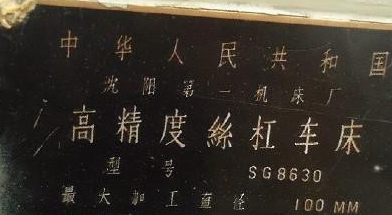 中华人民共和国
沈阳第一机床厂
高精度丝杠车床
型号 SG8630
最大加工直径 100 MM